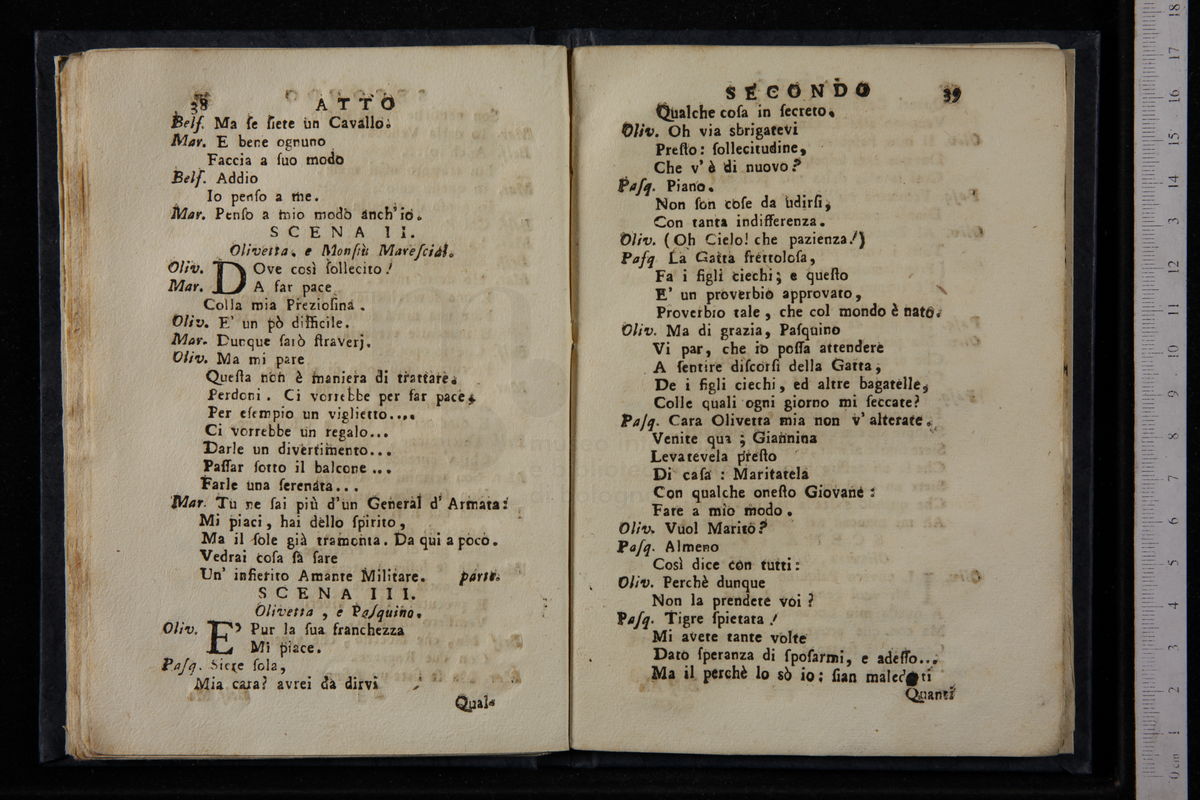 38 ATTO
Belſ. Ma ſe ſiete un Cavallo.
Mar. E bene ognuno
Faccia a ſuo modo
Belſ. Addio
Io penſo a me.
Mar. Penſo a mio modo anch'io.
SCENA II.
Olivetta, e Monſiù Mareſcial.
Oliv. DOve così ſollecito!
Mar. A far pace
Colla mia Prezioſina.
Oliv. E' un pò difficile.
Mar. Dunque ſarò ſtraverj.
Oliv. Ma mi pare
Queſta non è maniera di trattare.
Perdoni. Ci vorrebbe per far pace,
Per eſempio un viglietto....
Ci vorrebbe un regalo...
Darle un divertimento...
Paſſar ſotto il balcone...
Farle una ſerenata...
Mar. Tu ne ſai più d'un General d'Armata:
Mi piaci, hai dello ſpirito,
Ma il ſole già tramonta. Da qui a poco.
Vedrai coſa ſà fare
Un' infierito Amante Militare. parte.
SCENA III.
Olivetta, e Paſquino.
Oliv. E' Pur la ſua franchezza
Mi piace.
Paſq. Siete ſola,
Mia cara? avrei da dirvi
Qual-
SECONDO 39
Qualche coſa in ſecreto.
Oliv. Oh via sbrigatevi
Preſto: ſollecitudine,
Che v'è di nuovo?
Paſq. Piano.
Non ſon coſe da udirſi,
Con tanta indifferenza.
Oliv. (Oh Cielo! che pazienza!)
Paſq. La Gatta frettoloſa,
Fa i figli ciechi; e queſto
E' un proverbio approvato,
Proverbio tale, che col mondo è nato.
Oliv. Ma di grazia, Paſquino
Vi par, che io poſſa attendere
A ſentire diſcorſi della Gatta,
De i figli ciechi, ed altre bagatelle,
Colle quali ogni giorno mi ſeccate?
Paſq. Cara Olivetta mia non v'alterate.
Venite qua; Giannina
Levatevela preſto
Di caſa: Maritatela
Con qualche oneſto Giovane:
Fate a mio modo.
Oliv. Vuol Marito?
Paſq. Almeno
Così dice con tutti:
Oliv. Perchè dunque
Non la prendete voi?
Paſq. Tigre ſpietata!
Mi avete tante volte
Dato ſperanza di ſpoſarmi, e adeſſo...
Ma il perchè lo sò io: ſian maledetti
Quanti